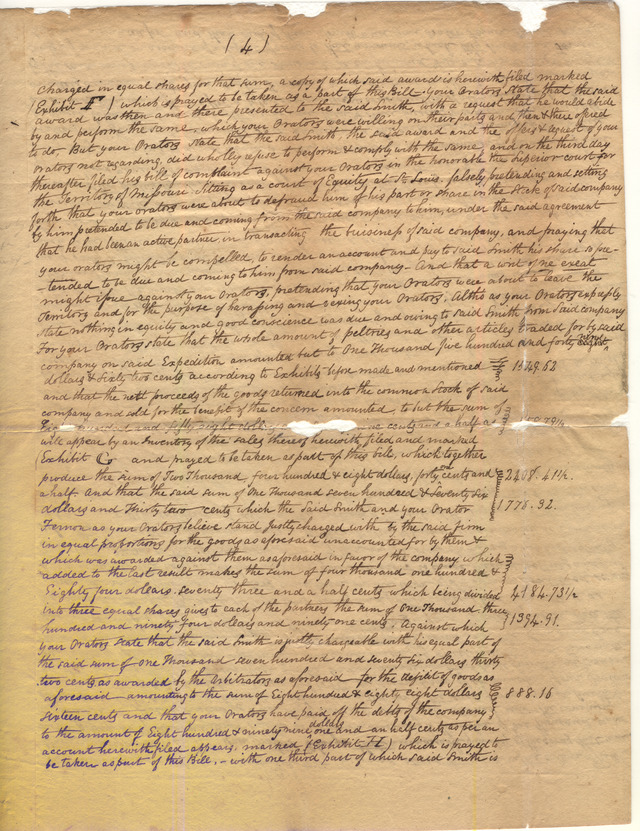 ( 4 )
charged in equal shares for that sum, a copy of which said award is herewith filed marked
Exhibit F ) which is prayed to be taken as a part of this Bill. Your Orators State that the said
award was then and there presented to the said Smith, with a request that he would abide
by and perform the same, which your Orators were willing on their parts and then & there offered
to do. But your Orators State that the said Smith the said award and the offers & request of your
orators not regarding, did wholly refuse to perform & comply with the same, and on the third day
thereafter filed his bill of complaint against your Orators in the honorable the Superior court for
the Territory of Missouri Sitting as a court of Equity at St Louis. falsely pretending and setting
forth that your orators were about to defraud him of his part or share in the Stock of said company
by him pretended to be due and coming from the said company to him, under the said agreement
that he had been an active partner in transacting the business of said company, and praying that
your orators might be compelled, to render an account and pay to said Smith his share so pre-
-tended to be due and coming to him from said company - And that a writ of ne exeat
might issue against your Orators, pretending that your Orators were about to leave the
Territory and for the purpose of harassing and vexing your Orators. Altho as your Orators expressly
state nothing in equity and good conscience was due and owing to said Smith from said company
For your Orators state that the whole amount of peltries and other articles traded for by said
company on said Expedition amounted but to One Thousand five hundred and forty nine
dollars & Sixty two cents according to Exhibits before made and mentioned 1549.62
and that the nett proceeds of the goods returned into the common Stock of said
company and sold for the benefit of the concern amounted to but the sum of
Eight hundred and fifty eight dollars cents and a half as 858.79½
will appear by an Inventory of the sales thereof herewith filed and marked
(Exhibit G and prayed to be taken as part of this bill, which together
produce the sum of Two Thousand four hundred & eight dollars, forty one cents and 2408.41½.
a half. And that the said sum of One Thousand seven hundred & Seventy Six
dollars and Thirty two cents which the Said Smith and your Orator 1776.32.
Fernon as your Orators believe stand justly charged with by the said firm
in equal proportions for the goods as aforesaid unaccounted for by them &
which was awarded against them as aforesaid in favor of the company which
added to the last result makes the sum of four thousand one hundred &
Eighty four dollars. seventy three and a half cents which being divided 4184.73½
into three equal shares gives to each of the partners the sum of One Thousand three
hundred and ninety four dollars and ninety one cents. Against which 1394.91.
your Orators State that the said Smith is justly chargeable with his equal part of
the said sum of one Thousand Seven hundred and Seventy Six dollars thirty
two cents as awarded by the Arbitrators as aforesaid for the deficit of goods as
aforesaid amounting to the sum of Eight hundred & eighty eight dollars 888.16
Sixteen cents and that your Orators have paid off the debts of the company
to the amount of Eight hundred & ninety nine dollars one and an half cents as per an
account herewith filed appears. marked (Exhibit H) which is prayed to
be taken as part of this Bill. - with one third part of which said Smith is